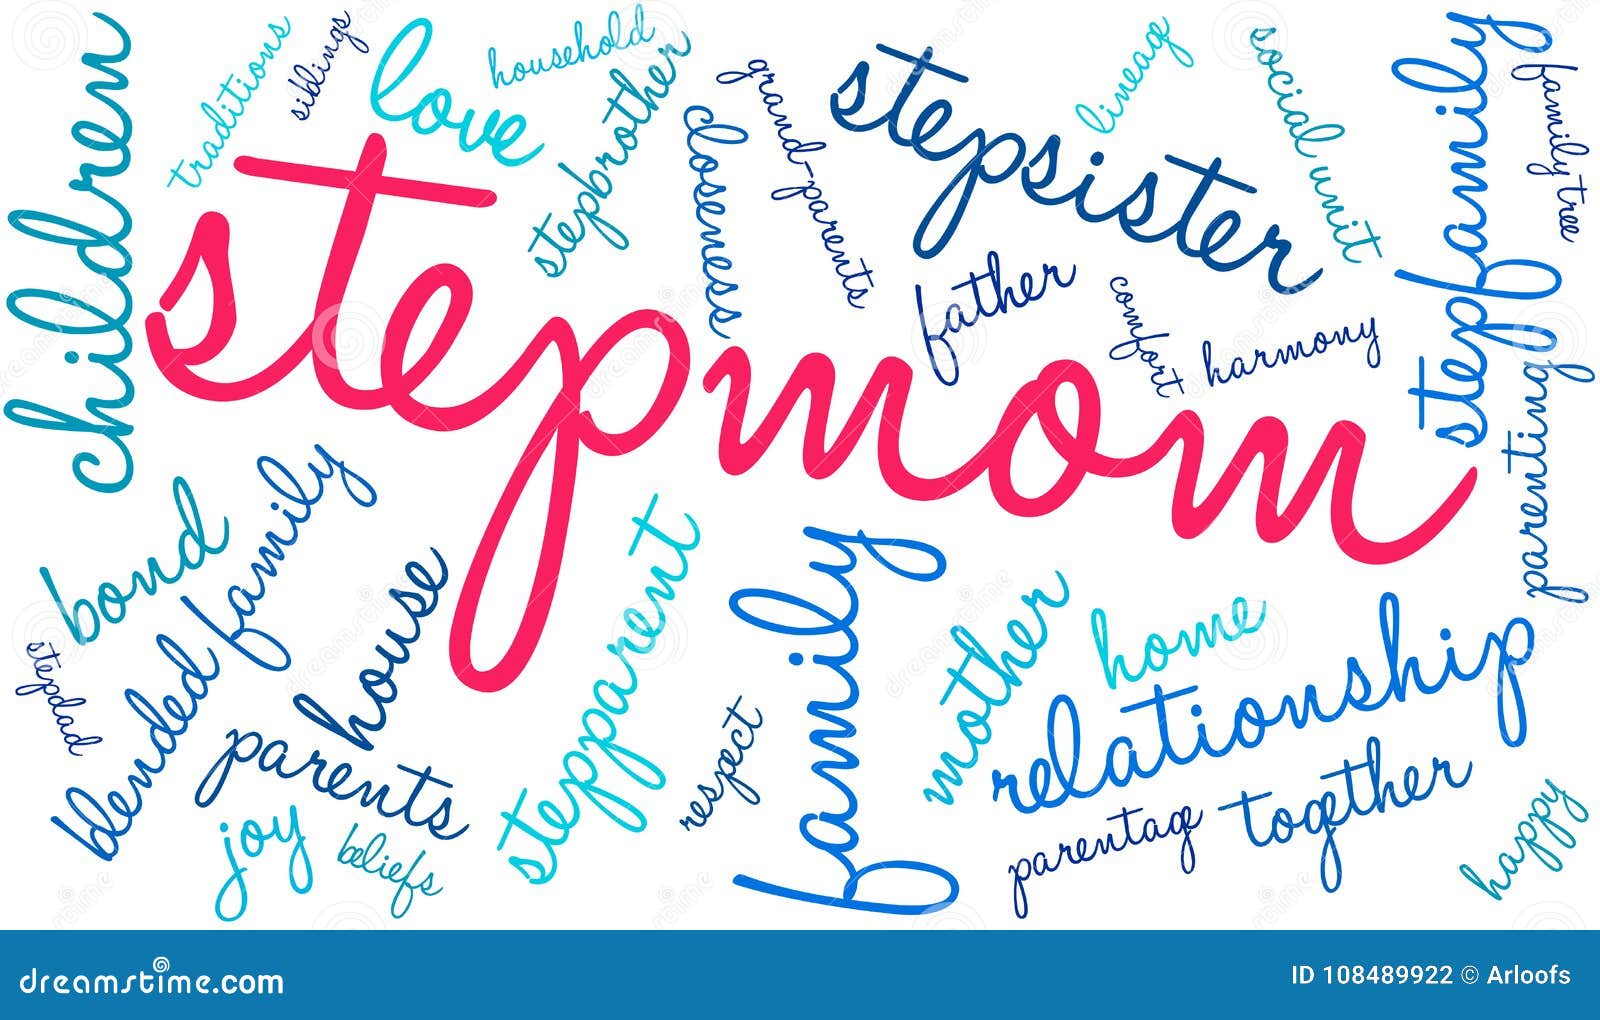 children
traditions
siblings
love
household
stepbrother
closeness
grand-parents
stepsister
lineag
social unit
stepfamily
family tree
stepmom
father
comfort
harmony
parenting
bond
blended family
house
stepdad
parents
joy
beliefs
stepparent
respect
family
mother
home
relationship
parentag
together
happy
dreamstime.com
ID 108489922 © Arloofs